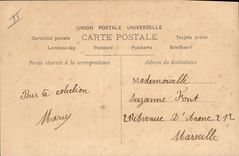 II
UNION POSTALE UNIVERSELLE
CARTE POSTALE
Cartolina postale
Tarjeta postal
Levelezo-lap
Postcard
Postkarte
Briefkaart
Partie réservée à la correspondance
Adresse du destinataire
Pour ta colection
Marcy
Mademoiselle
Suzanne Font
D'Arenc 212
Marseille